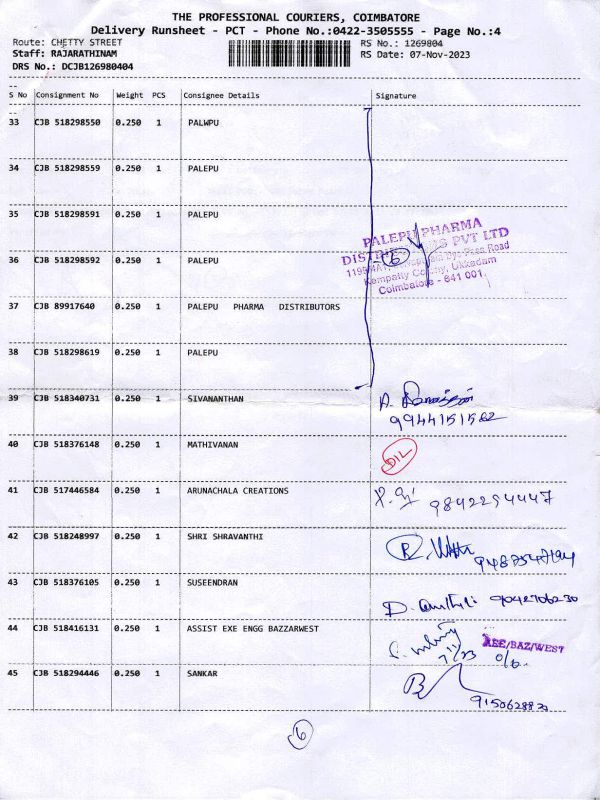 THE PROFESSIONAL COURIERS, COIMBATORE
Delivery Runsheet - PCT - Phone No.:0422-3505555 - Page No.:4
Route: CHETTY STREET RS No.: 1269804
Staff: RAJARATHINAM RS Date: 07-Nov-2023
DRS No.: DCJB126980404
S No Consignment No Weight PCS Consignee Details Signature
33 CJB 518298550 0.250 1 PALWPU
34 CJB 518298559 0.250 1 PALEPU
35 CJB 518298591 0.250 1 PALEPU
PALEPU PHARMA
PVT LTD
36 CJB 518298592 0.250 1 PALEPU 6
Road
Ukkadam
Coimbatore - 641 001.
37 CJB 89917640 0.250 1 PALEPU PHARMA DISTRIBUTORS
38 CJB 518298619 0.250 1 PALEPU
39 CJB 518340731 0.250 1 SIVANANTHAN
9944151582
40 CJB 518376148 0.250 1 MATHIVANAN DIL
41 CJB 517446584 0.250 1 ARUNACHALA CREATIONS 9842294447
42 CJB 518248997 0.250 1 SHRI SHRAVANTHI
43 CJB 518376105 0.250 1 SUSEENDRAN
44 CJB 518416131 0.250 1 ASSIST EXE ENGG BAZZARWEST AEE/BAZ/WEST
45 CJB 518294446 0.250 1 SANKAR
6